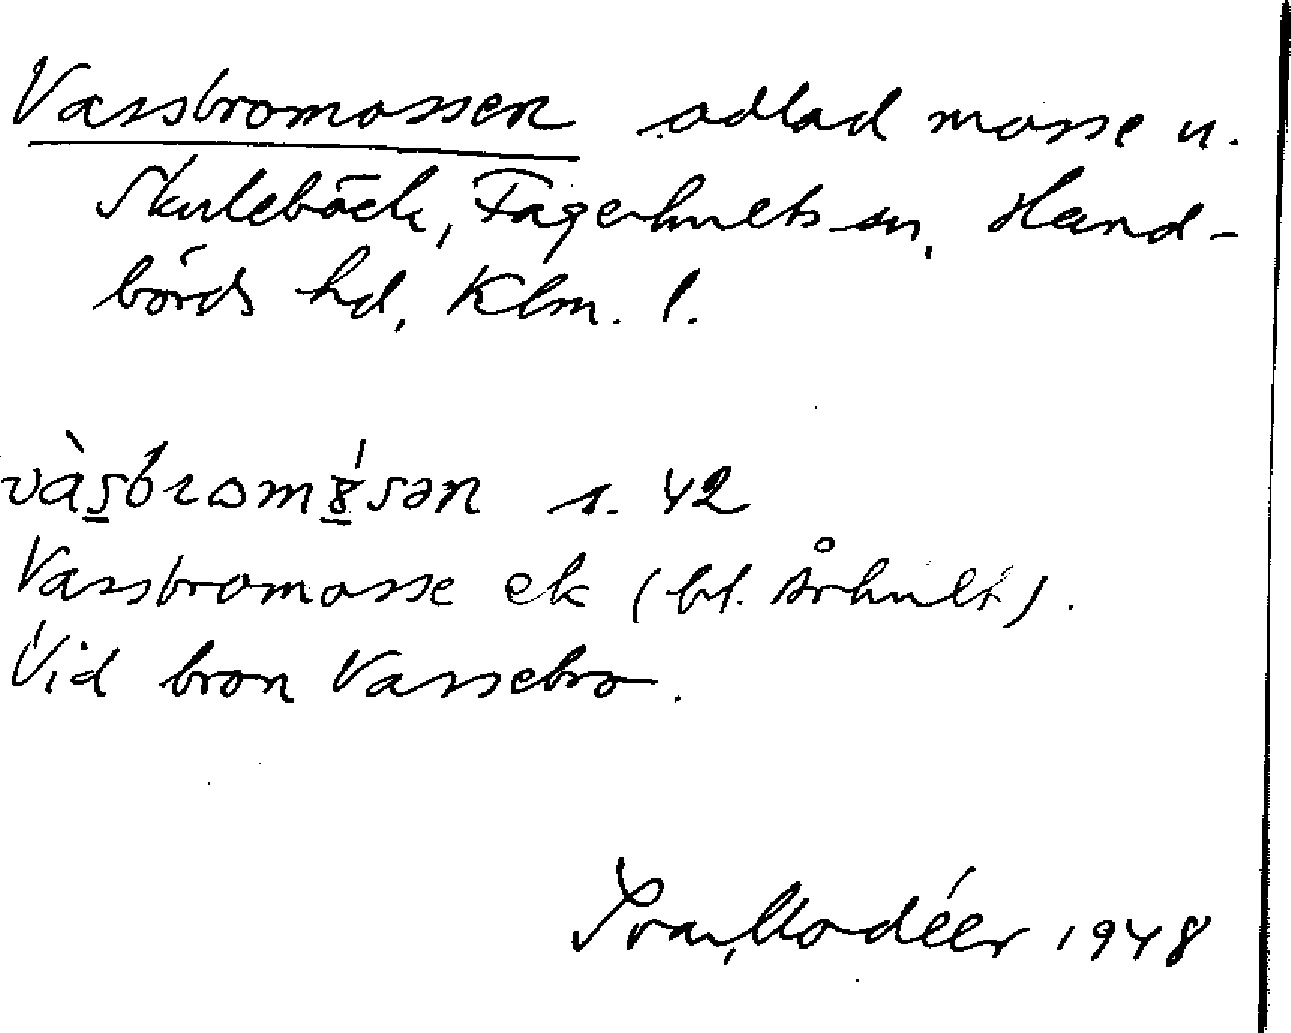 Vassbromossen odlad mosse n.
Skulebäck, Fagerhults sn, Hand-
börds hd, Klm. l.
s. 42
Vassbromosse ek (bl. Århult).
Vid bron Vassebro.
Ivar Modéer 1948